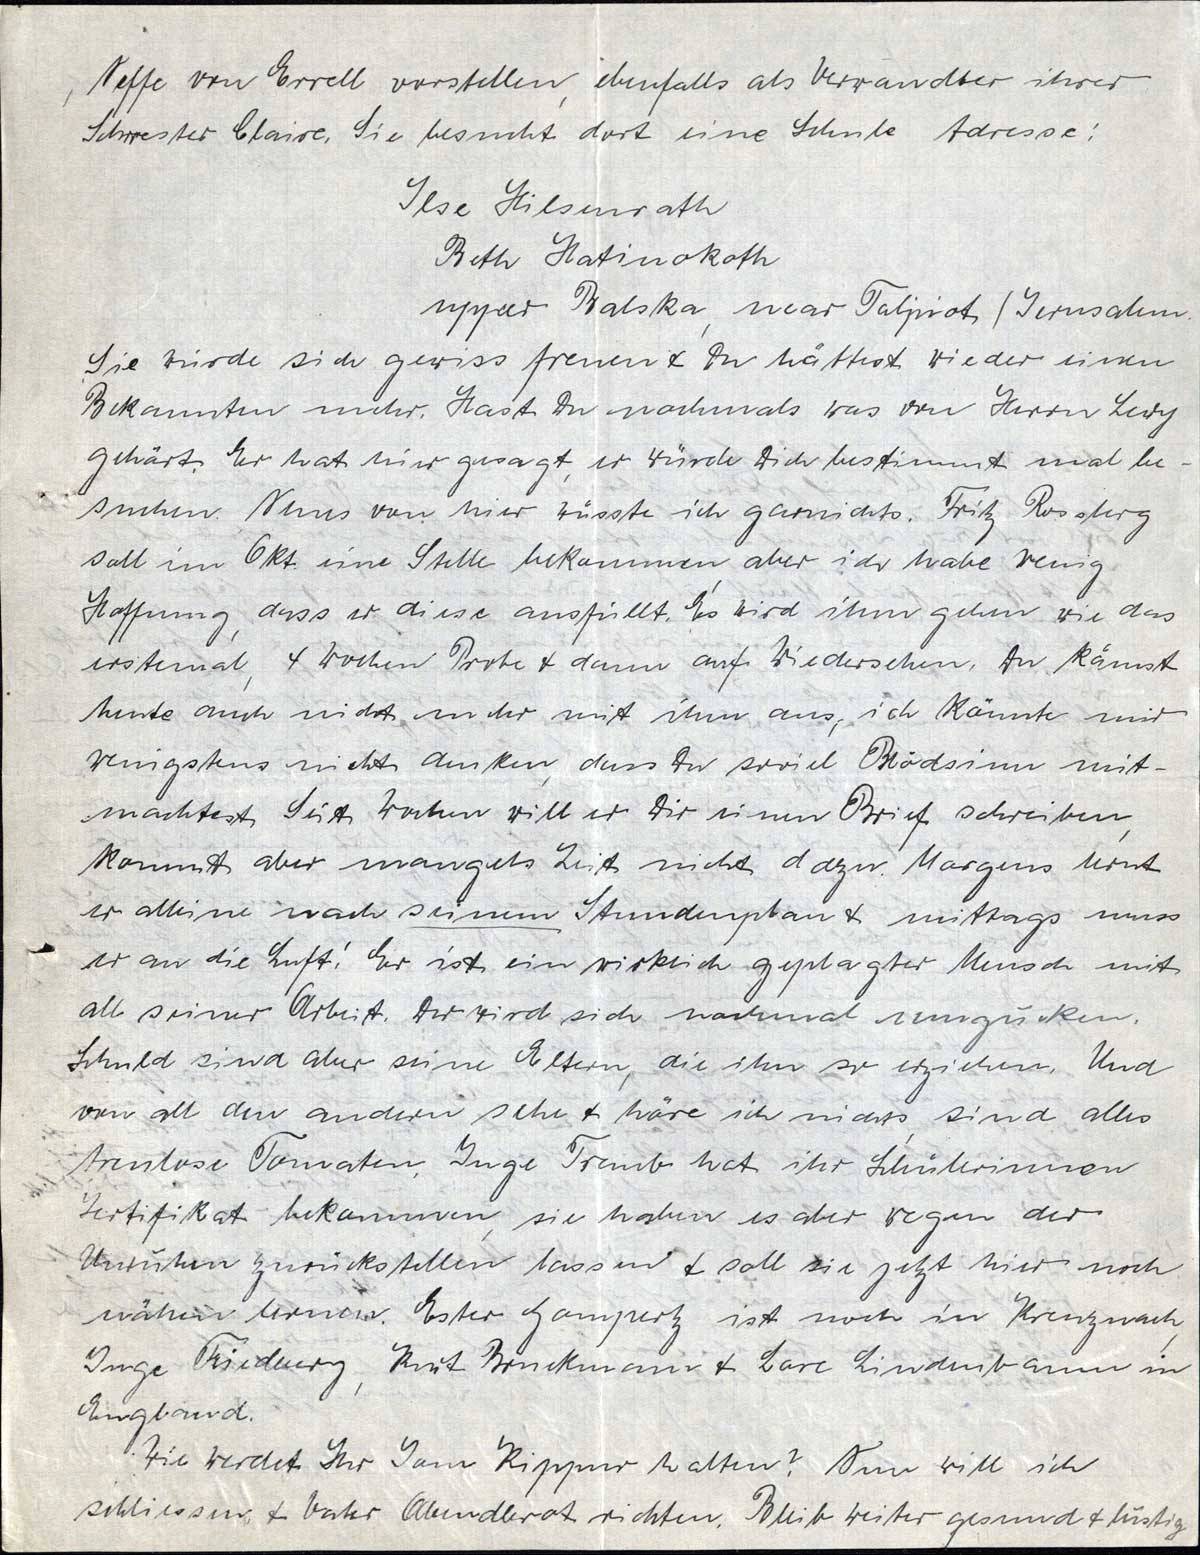 , Neffe von Errell vorstellen, ebenfalls als Verwandter ihrer
Schwester Claire. Sie besucht dort eine Schule Adresse:
Ilse Hilsenrath
Beth Hatinokoth
upper Balska, near Talpiot / Jerusalem.
Sie würde sich gewiss freuen & Du hättest wieder einen
Bekannten mehr. Hast Du nochmals was von Herrn Lewy
gehört. Er hat hier gesagt, er würde Dich bestimmt mal be-
suchen. Neues von hier wüsste ich garnichts. Fritz Rossberg
soll im Okt. eine Stelle bekommen, aber ich habe wenig
Hoffnung, dass er diese ausfüllt. Es wird ihm gehen wie das
erstemal, 4 Wochen Probe & dann auf Wiedersehen. Du kämst
heute auch nicht mehr mit ihm aus, ich könnte mir
wenigstens nicht denken, dass Du soviel Blödsinn mit-
machtest. Seit Wochen will er Dir einen Brief schreiben,
kommt aber mangels Zeit nicht dazu. Morgens lernt
er alleine nach seinem Stundenplan & mittags muss
er an die Luft! Er ist ein wirklich geplagter Mensch mit
all seiner Arbeit. Der wird sich nochmal umgucken.
Schuld sind aber seine Eltern, die ihn so erziehen. Und
von all den andern sehe & höre ich nichts, sind alles
treulose Tomaten. Inge Traub hat ihr Schülerinnen
Zertifikat bekommen, sie haben es aber wegen der
Unruhen zurückstellen lassen & soll sie jetzt hier noch
nähen lernen. Ester Gompertz ist noch in Kreuznach,
Inge Friedberg, Kurt Bruckmann & Lore Lindenbaum in
England.
Wie werdet Ihr Jom Kippur halten? Nun will ich
schliessen, & Vater Abendbrot richten. Bleib weiter gesund & lustig